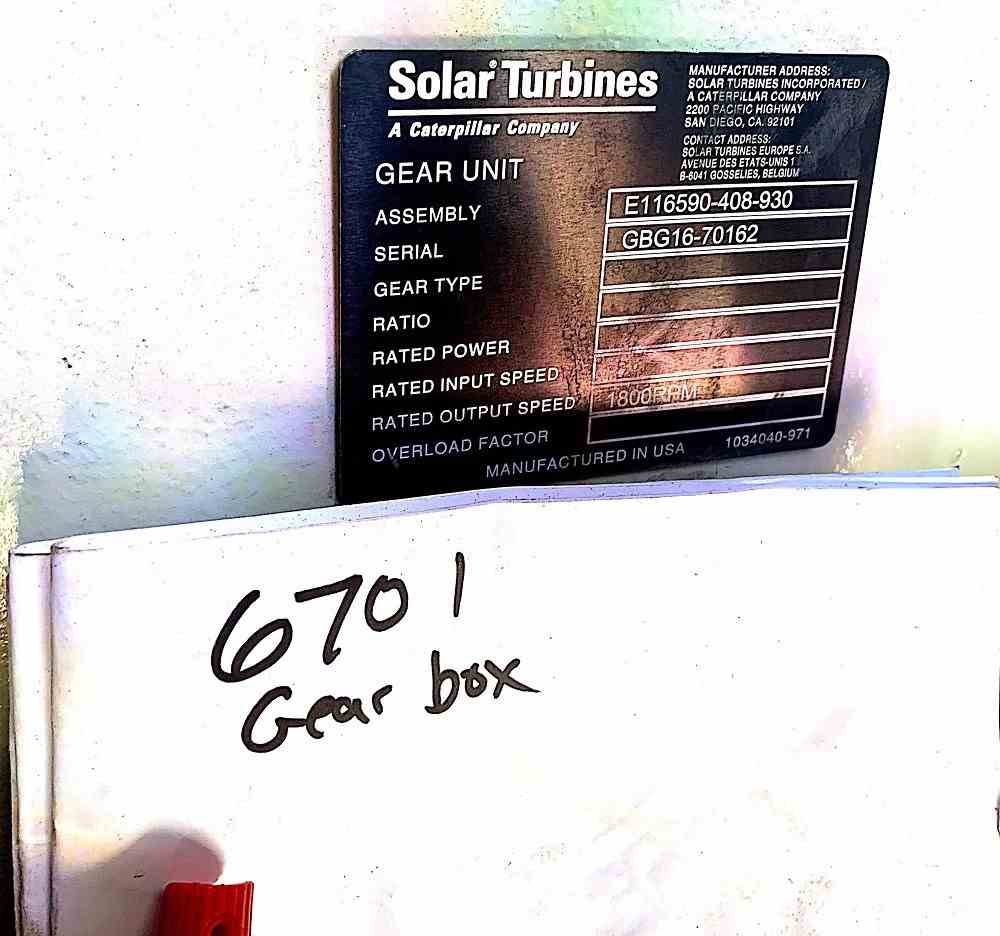 Solar® Turbines
A Caterpillar Company
MANUFACTURER ADDRESS:
SOLAR TURBINES INCORPORATED /
A CATERPILLAR COMPANY
2200 PACIFIC HIGHWAY
SAN DIEGO, CA. 92101
CONTACT ADDRESS:
SOLAR TURBINES EUROPE S.A.
AVENUE DES ETATS-UNIS 1
B-6041 GOSSELIES, BELGIUM
GEAR UNIT
ASSEMBLY E116590-408-930
SERIAL GBG16-70162
GEAR TYPE
RATIO
RATED POWER
RATED INPUT SPEED
RATED OUTPUT SPEED 1800RPM
OVERLOAD FACTOR
MANUFACTURED IN USA 1034040-971
6701
Gear box